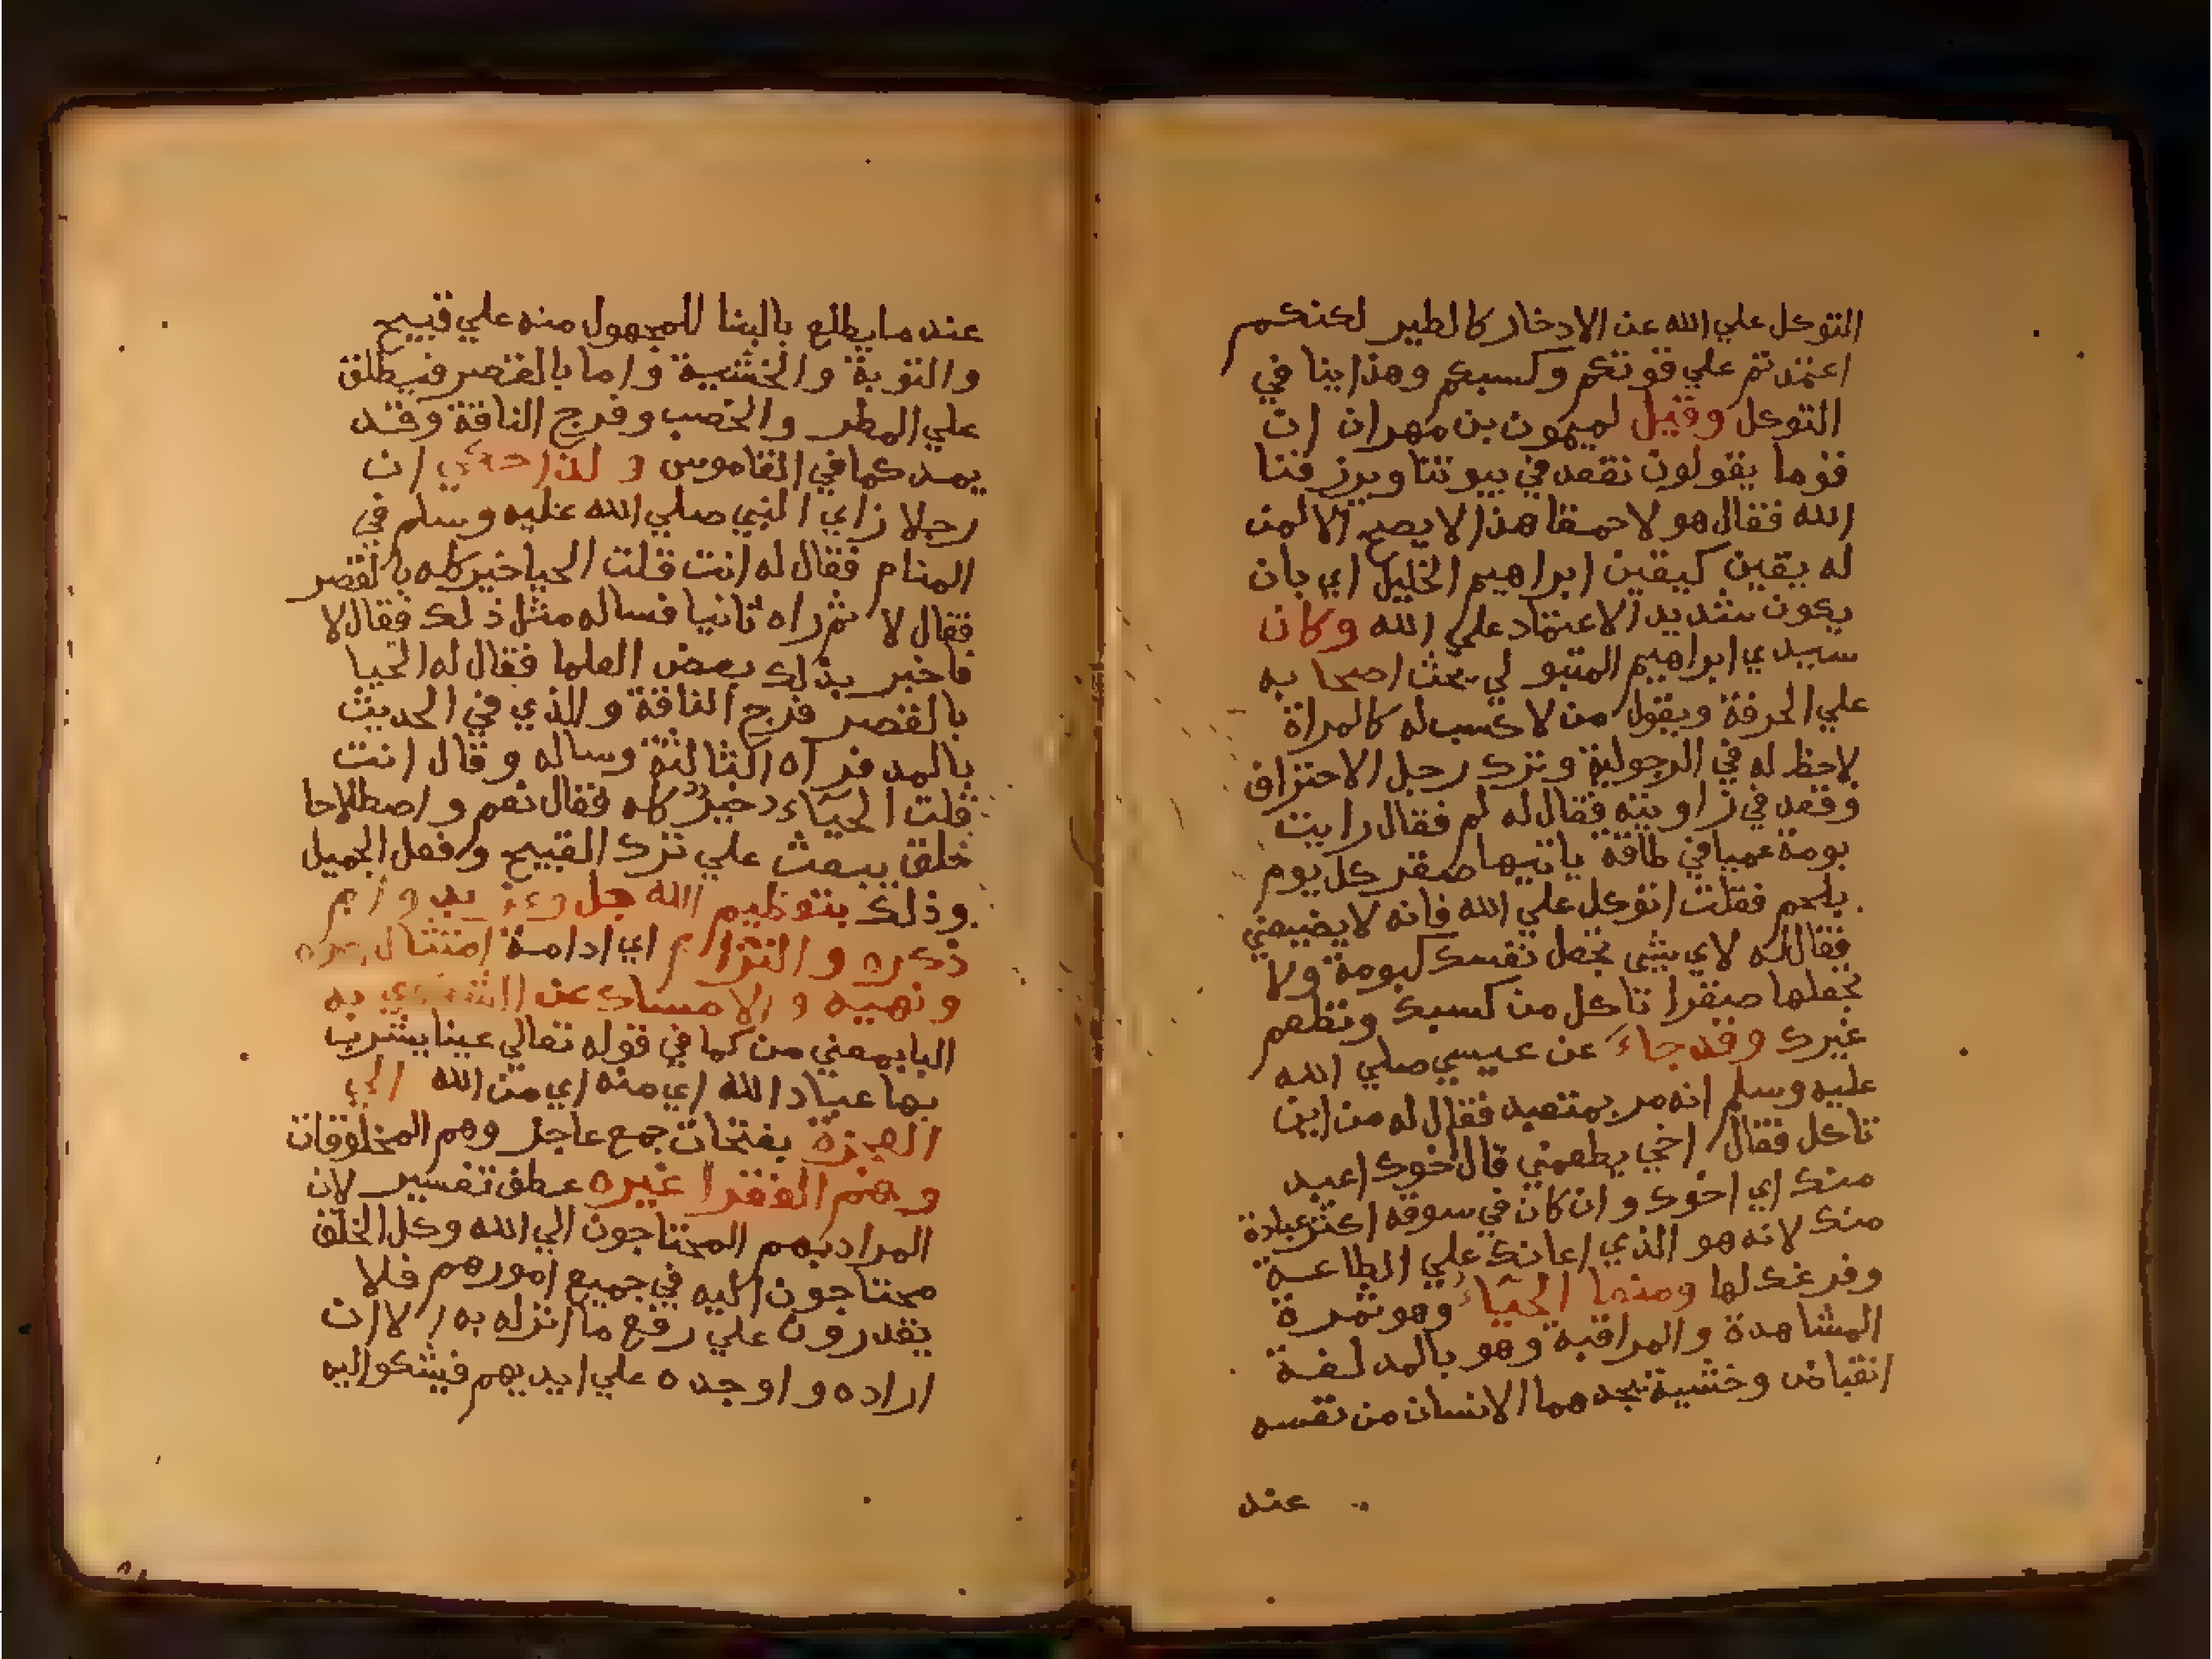 التوكل علي الله عن الادخار كالطير لكنكم
اعتمدتم علي قوتكم وكسبكم وهذا ينافي
التوكل وقيل لميمون بن مهران ان
قوما يقولون نقعد في بيوتنا ويرزقنا
الله فقال هولا حمقا هذا لا يصح الا لمن
له يقين كيقين ابراهيم الخليل اي بان
يكون شديد الاعتماد علي الله وكان
سيدي ابراهيم المتبولي يحث اصحابه
علي الحرفة ويقول من لا كسب له كالمراة
لاحظ له في الرجولية وترك رجل الاحتراف
وقعد في زاويته فقال له لم فقال رايت
بومة عميا في طاقة ياتيها صقر كل يوم
بلحم فقلت اتوكل علي الله فانه لا يضيعني
فقال له لاي شي تجعل نفسك كبومة ولا
تجعلها صقرا تاكل من كسبك وتطعم
غيرك وقد جاء عن عيسي صلي الله
عليه وسلم انه مر بمتعبد فقال له من اين
تاكل فقال اخي يطعمني قال اخوك اعبد
منك اي اخوك وان كان في سوقه اكثر عبادة
منك لانه هو الذي اعانك علي الطاعة
وفرغك لها ومنها الحياء وهو ثمرة
المشاهدة والمراقبة وهو بالمد لغة
انقباض وخشية يجدهما الانسان من نفسه
عند
عند ما يطلع بالبنا للمجهول منه علي قبيح
والتوبة والخشية واما بالقصر فيطلق
علي المطر والخصب وفرج الناقة وقد
يمد كما في القاموس ولذا حكي ان
رجلا راي النبي صلي الله عليه وسلم في
المنام فقال له انت قلت الحيا خير كله بالقصر
فقال لا ثم راه ثانيا فساله مثل ذلك فقال لا
فاخبر بذلك بعض العلما فقال له الحيا
بالقصر فرج الناقة والذي في الحديث
بالمد فراه الثالثة وساله وقال انت
قلت الحياء خير كله فقال نعم واصطلاحا
خلق يبعث علي ترك القبيح وفعل الجميل
وذلك بتعظيم الله جل وعز بدوام
ذكره والتزام اي ادامة امتثال امره
ونهيه والامساك عن الشكوي به
البا بمعني من كما في قوله تعالي عينا يشرب
بها عباد الله اي منه اي من الله الي
العجزة بفتحات جمع عاجز وهم المخلوقات
وهم الفقرا غيره عطف تفسير لان
المراد بهم المحتاجون الي الله وكل الخلق
محتاجون اليه في جميع امورهم فلا
يقدرون علي رفع ما انزله به الا ان
اراده واوجده علي ايديهم فيشكو اليه